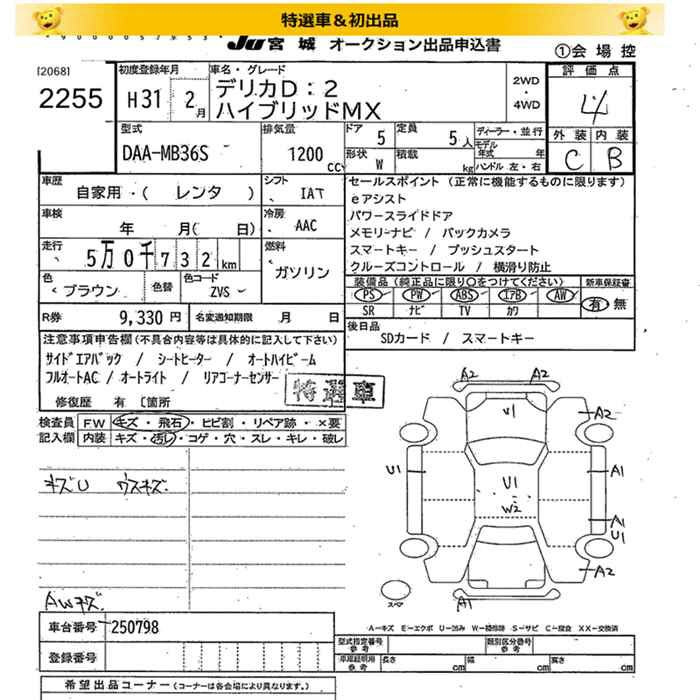 特選車＆初出品
JU宮城 オークション出品申込書
①会場控
[2068]
2255
初度登録年月
H31 2月
車名・グレード
デリカD：2
ハイブリッドMX
2WD
・
4WD
評価点
4
外装 内装
C B
型式
DAA-MB36S
排気量
1200
cc
ドア 5
定員 5人
形状 W
積載 kg
ディーラー・並行
モデル年式 年
ハンドル 左・右
車歴
自家用・( レンタ )
シフト
IAT
車検
年 月( 日)
冷房
AAC
走行
5万0千732km
燃料
ガソリン
色
ブラウン
色替
色コード
ZVS
R券 9,330円
名変通知期限 月 日
セールスポイント (正常に機能するものに限ります)
eアシスト
パワースライドドア
メモリーナビ / バックカメラ
スマートキー / プッシュスタート
クルーズコントロール / 横滑り防止
装備品(純正品に限り○をつけてください)
PS PW ABS エアB AW
SR ナビ TV カワ
新車保証書
有 無
後日品
SDカード / スマートキー
注意事項申告欄(不具合内容等は具体的に記入して下さい)
サイドエアバック / シートヒーター / オートハイビーム
フルオートAC / オートライト / リアコーナーセンサー
特選車
修復歴 有 〔箇所
検査員
記入欄
FW キズ・飛石・ヒビ割・リペア跡・×要
内装 キズ・汚レ・コゲ・穴・スレ・キレ・破レ
キズU ウスキズ
AWキズ
A2 A2
U1
A2
U1
A1
U1
W2
A1
U1
A2
A1
スペア
A－キズ E－エクボ U－凹み W－補修跡 S－サビ C－腐食 XX－交換済
車台番号 250798
登録番号
型式指定番号
参考
類別区分番号
参考
車庫証明用
参考
長さ cm 幅 cm 高さ cm
希望出品コーナー(コーナーは各会場により異なります)